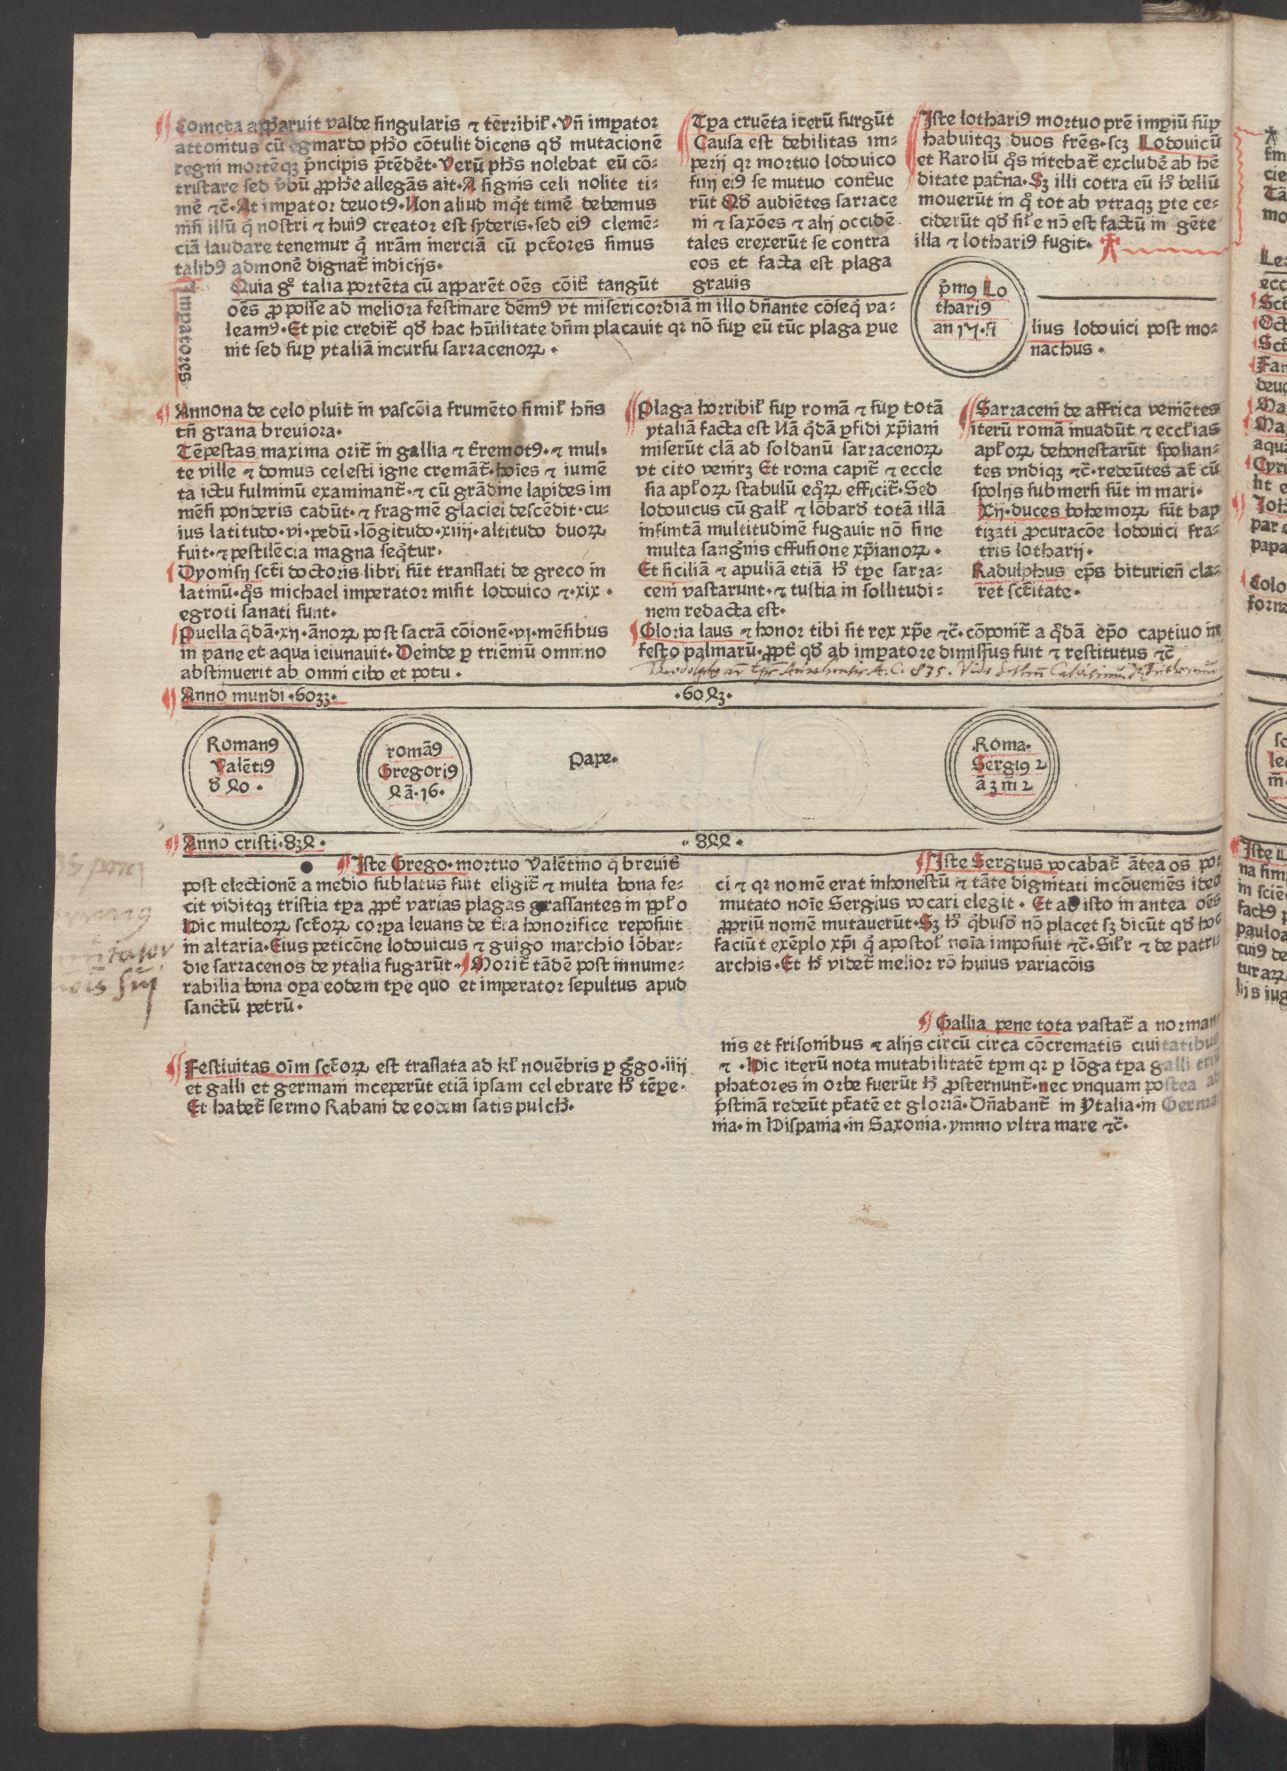 Cometa apparuit valde singularis ⁊ terribil̕·Vñ imꝑator
attonitus cū egmardo pħo cōtulit dicens qḋ mutacionē
regni mortēqꝫ p̄ncipis p̄tēdēt·Verū pħs nolebat eū cō-
tristare sed v̕bū ꝓpħe allegās ait·A signis celi nolite ti-
mē ⁊c̄·At imꝑator deuotꝰ·Non aliud inq̇t timē debemus
nisi illū q̇ nostri ⁊ huiꝰ creator est syderis·sed eiꝰ clemē-
ciā laudare tenemur q̇ nr̄am inerciā cū pctōres simus
talibꝰ admonē dignat̄ indicijs·
Quia g̊ talia portēta cū apparēt oēs cōit̄ tangūt
oēs ꝓ posse ad meliora festinare dēmꝰ vt misericordiā in illo dn̄ante cōseq̇ va-
leamꝰ·Et pie credit̄ qḋ hac hūilitate dn̄m placauit qꝛ nō suꝑ eū tūc plaga ꝑue
nit sed suꝑ ytaliā incursu sarracenoꝝ·
Imꝑatores
Tꝑa cruēta iterū surgūt
Causa est debilitas im-
perij qꝛ mortuo lodouico
filij eiꝰ se mutuo cont̄uc
rūt Qḋ audiētes sarrace
ni ⁊ saxōes ⁊ alij occidē
tales erexerūt se contra
eos et facta est plaga
grauis
Iste lothariꝰ mortuo pr̄e imꝑiū sūp
habuitqꝫ duos fr̄es·scꝫ Lodouicū
et Karolū q̊s nitebat̄ excludē ab hē
ditate pat̄na·Sꝫ illi cōtra eū ħ bellū
mouerūt in q̊ tot ab vtraqꝫ ꝑte ce-
ciderūt qḋ sil̕e nō est factū in gēte
illa ⁊ lothariꝰ fugit·
p̄mꝰ Lo
thariꝰ
an 17·fi
lius lodouici post mo-
nachus·
Annona de celo pluit in vascōia frumēto simil̕ hn̄s
tn̄ grana breuiora·
Tēpestas maxima orit̄ in gallia ⁊ t̄remotꝰ·⁊ mul-
te ville ⁊ domus celesti igne cremāt̄·hoīes ⁊ iumē
ta ictu fulminū examinant̄·⁊ cū grādine lapides im
mēsi ponderis cadūt·⁊ fragmē glaciei descēdit·cu-
ius latitudo·vi·pedū·lōgitudo·xiiij·altitudo duoꝝ
fuit·⁊ pestilēcia magna seq̄tur·
Dyonisij sc̄ti doctoris libri sūt translati de greco in
latinū·q̊s michael imperator misit lodouico ⁊·xix·
egroti sanati sunt·
Puella q̇dā·xij·ānoꝝ post sacrā cōionē·vj·mēsibus
in pane et aqua ieiunauit·Deinde ꝑ trienniū omnino
abstinuerit ab omni cibo et potu·
Plaga horribil̕ suꝑ romā ⁊ suꝑ totā
ytaliā facta est Nā q̇dā ꝑfidi xp̄iani
miserūt clā ad soldanū sarracenoꝝ
vt cito venirꝫ Et roma capit̄ ⁊ eccle
sia apl̕oꝝ stabulū eq̊ꝝ efficit̄·Sed
lodouicus cū gall̕ ⁊ lōbard̕ totā illā
infinitā multitudinē fugauit nō sine
multa sang̊nis effusione xp̄ianoꝝ·
Et siciliā ⁊ apuliā etiā ħ tp̄e sarra-
ceni vastarunt·⁊ tustia in sollitudi-
nem redacta est·
Gloria laus ⁊ honor tibi sit rex xp̄e ⁊c̄·cōponit̄ a q̇dā ep̄o captiuo in
festo palmarū·ꝓpt̄ qḋ ab imꝑatore dimissus fuit ⁊ restitutus ⁊c̄
Sarraceni de affrica veniētes
iterū romā inuadūt ⁊ eccl̕ias
apl̕oꝝ dehonestarūt spolian-
tes vndiqꝫ ⁊c̄·redeūtes at̄ cū
spolijs submersi sūt in mari·
Xij·duces bohemoꝝ sūt bap
tizati ꝓcuracōe lodouici fra-
tris lotharij·
Radulphus ep̄s biturien̄ cla-
ret sc̄titate·
Anno mundi·6033·
·6043·
Romanꝰ
Valētiꝰ
d̕ 40·
romāꝰ
Gregoriꝰ
4 ā·16·
Pape·
·Roma·
Sergiꝰ 2
ā 3 m̄ 2
Anno cristi·834·
·844·
Iste Grego·mortuo Valētino q̇ breuit̄
post electionē a medio sublatus fuit eligit̄ ⁊ multa bona fe-
cit viditqꝫ tristia tꝑa ꝓpt̄ varias plagas grassantes in ppl̕o
Hic multoꝝ sc̄toꝝ corpa leuans de t̄ra honorifice reposuit
in altaria·Eius peticōne lodouicus ⁊ guigo marchio lōbar-
die sarracenos de ytalia fugarūt·Morit̄ tādē post innume-
rabilia bona oꝑa eodem tp̄e quo et imperator sepultus apud
sanctū petrū·
Iste Sergius vocabat̄ ātea os por
ci ⁊ qꝛ nomē erat inhonestū ⁊ tāte dignitati incōueniēs ideo
mutato noīe Sergius vocari elegit·Et ab isto in antea oēs
ꝓpriū nomē mutauerūt·Sꝫ ħ q̇busd̕ nō placet sꝫ dicūt qḋ hoc
faciūt exēplo xp̄i q̇ apostol̕ noīa imposuit ⁊c̄·Sil̕r ⁊ de patri
archis·Et ħ videt̄ melior rō huius variacōis
Festiuitas oīm sc̄toꝝ est traslata ad kl̕ nouēbris ꝑ g̊go·iiij
et galli et germani inceperūt etiā ipsam celebrare ħ tēpe·
Et habet̄ sermo Rabani de eodem satis pulcħ·
Gallia pene tota vastat̄ a norman
nis et frisonibus ⁊ alijs circū circa cōcrematis ciuitatibus
⁊·Hic iterū nota mutabilitatē tꝑm qꝛ ꝑ lōga tꝑa galli triū
phatores in orbe fuerūt ħ ꝓsternunt̄·nec vnquam postea ad
p̄stinā redeūt pt̄atē et gloriā·Dn̄abant̄ in Ytalia·in Germa
nia·in Hispania·in Saxonia·ymmo vltra mare ⁊c̄·